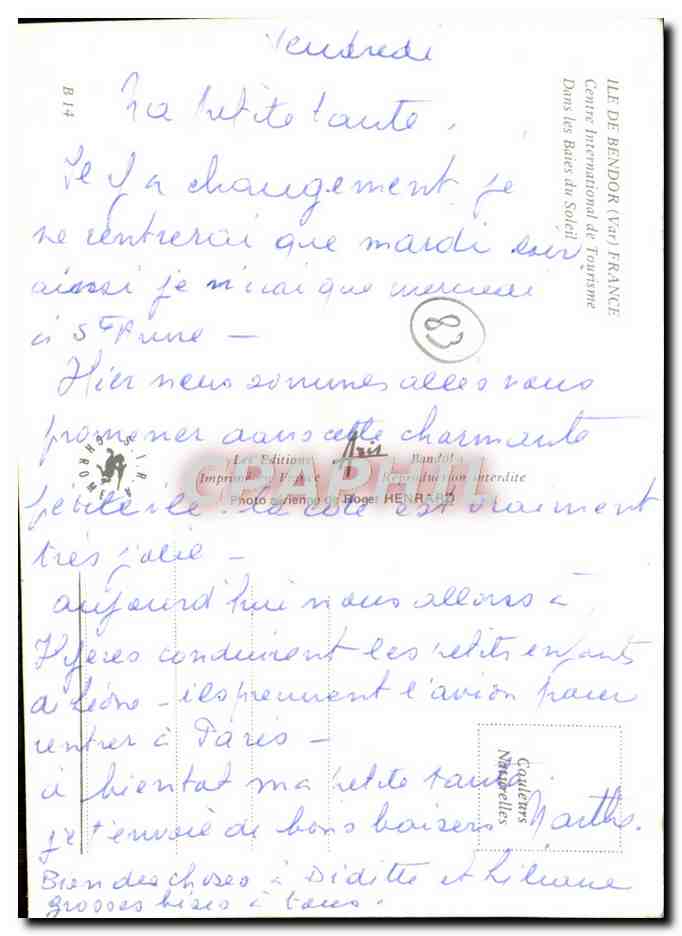 Vendredi
Ma petite tante,
Il y a changement je
ne rentrerai que mardi soir
ainsi je n'irai que mercredi
à Ste Anne —
Hier nous sommes allés nous
promener dans cette charmante
petite île. la côte est vraiment
très jolie —
aujourd'hui nous allons à
Hyères conduirent les petits enfants
à Léone — ils prennent l'avion pour
rentrer à Paris —
à bientôt ma petite tante
je t'envoie de bons baisers Marthe.
Bien des choses à Diditte et Liliane
grosses bises à tous.
83
B 14
ILE DE BENDOR (Var) FRANCE
Centre International de Tourisme
Dans les Baies du Soleil
Les Editions Aris Bandol
Imprimé en France Reproduction interdite
Photo aérienne de Roger HENRARD
CPAPHIL
Couleurs
Naturelles